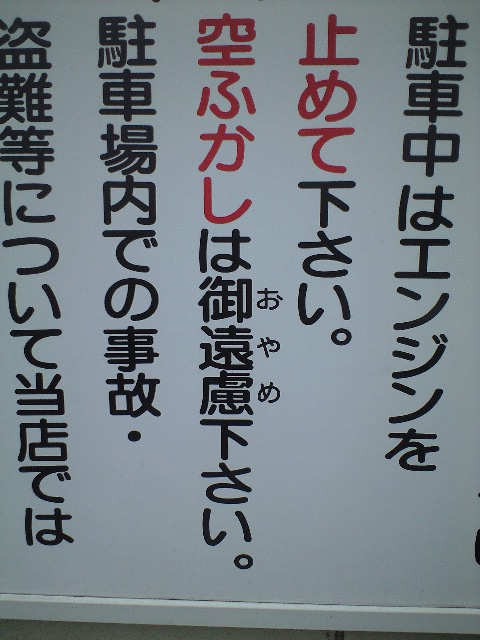 駐車中はエンジンを
止めて下さい。
空ふかしは御遠慮下さい。
おやめ
駐車場内での事故・
盗難等について当店では